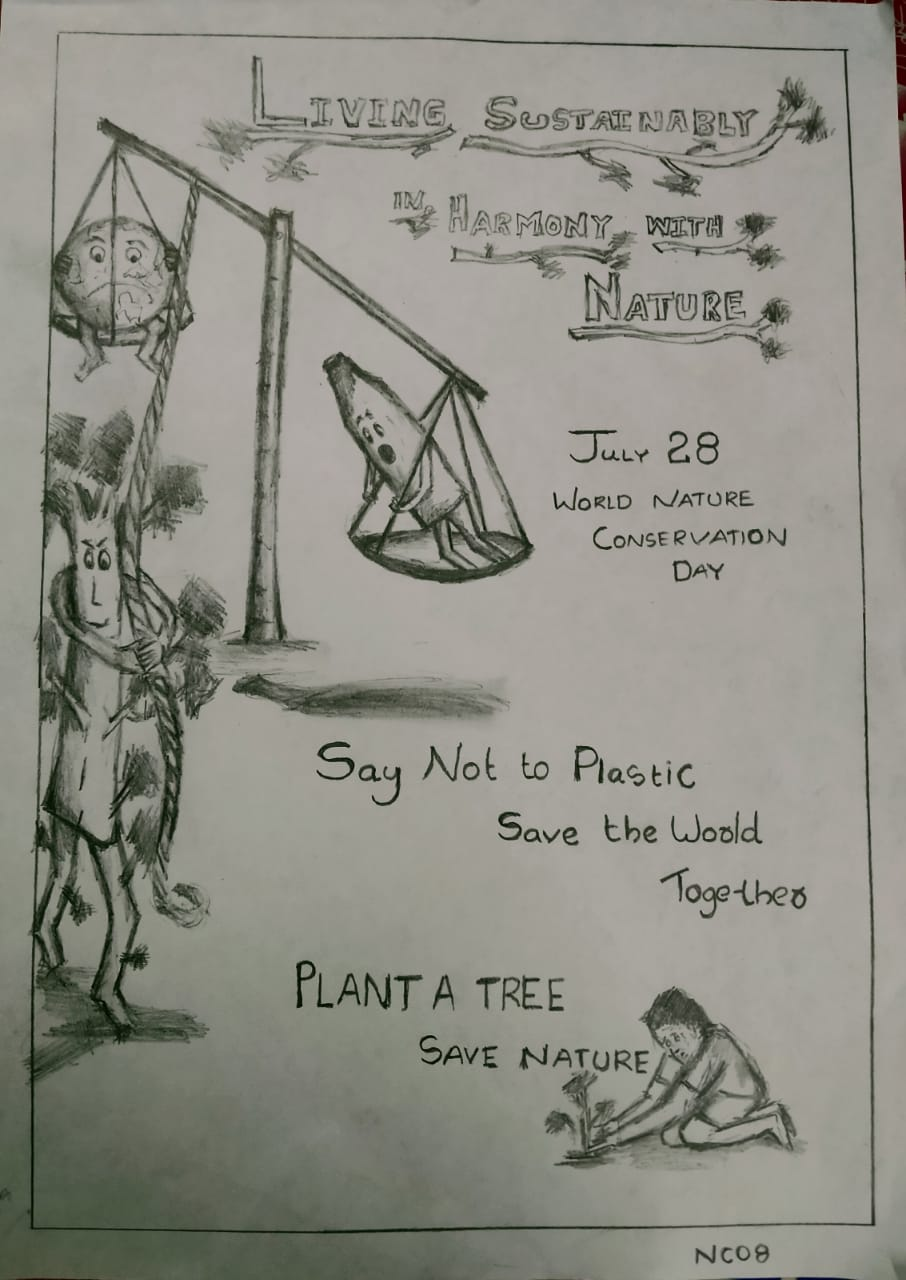 LIVING SUSTAINABLY
IN HARMONY WITH
NATURE
JULY 28
WORLD NATURE
CONSERVATION
DAY
Say Not to Plastic
Save the World
Together
PLANT A TREE
SAVE NATURE
NC08